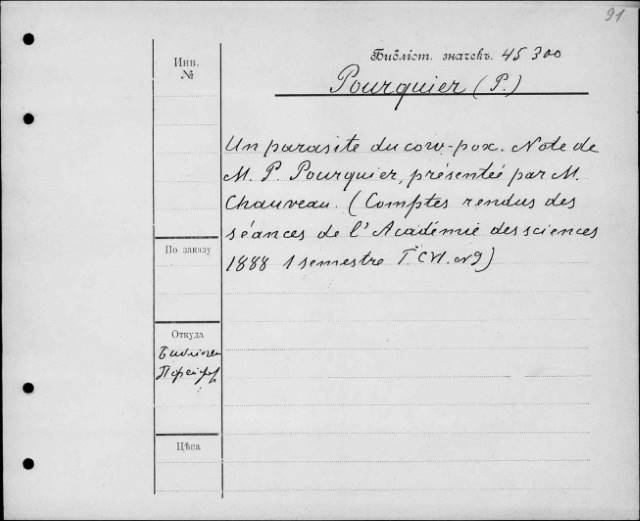 91
Библіот. значекъ. 45300
Pourquier (P.)
Инв.
№
Un parasite du cow-pox. Note de
M. P. Pourquier, présenteé par M.
Chauveau. (Comptes rendus des
séances de l'Académie des sciences
1888 1 semestre T. CVI. N 9)
По заказу
Откуда
Цѣса